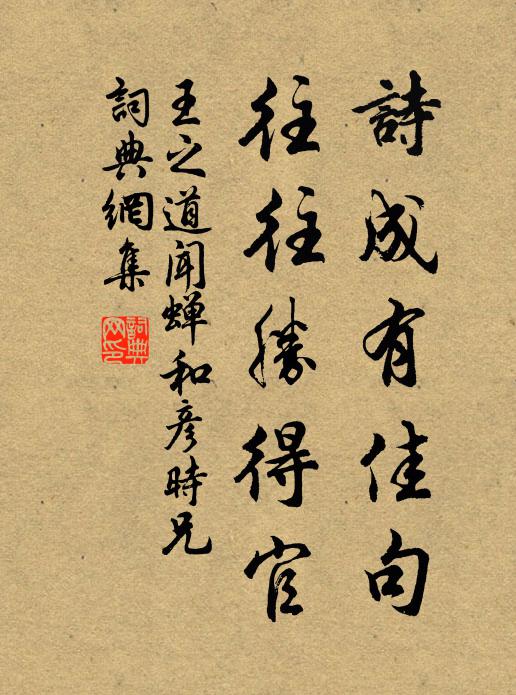 詩成有佳句
往往勝得官
王之道聞蟬和彥時兄
詞典網集
詞典
网印